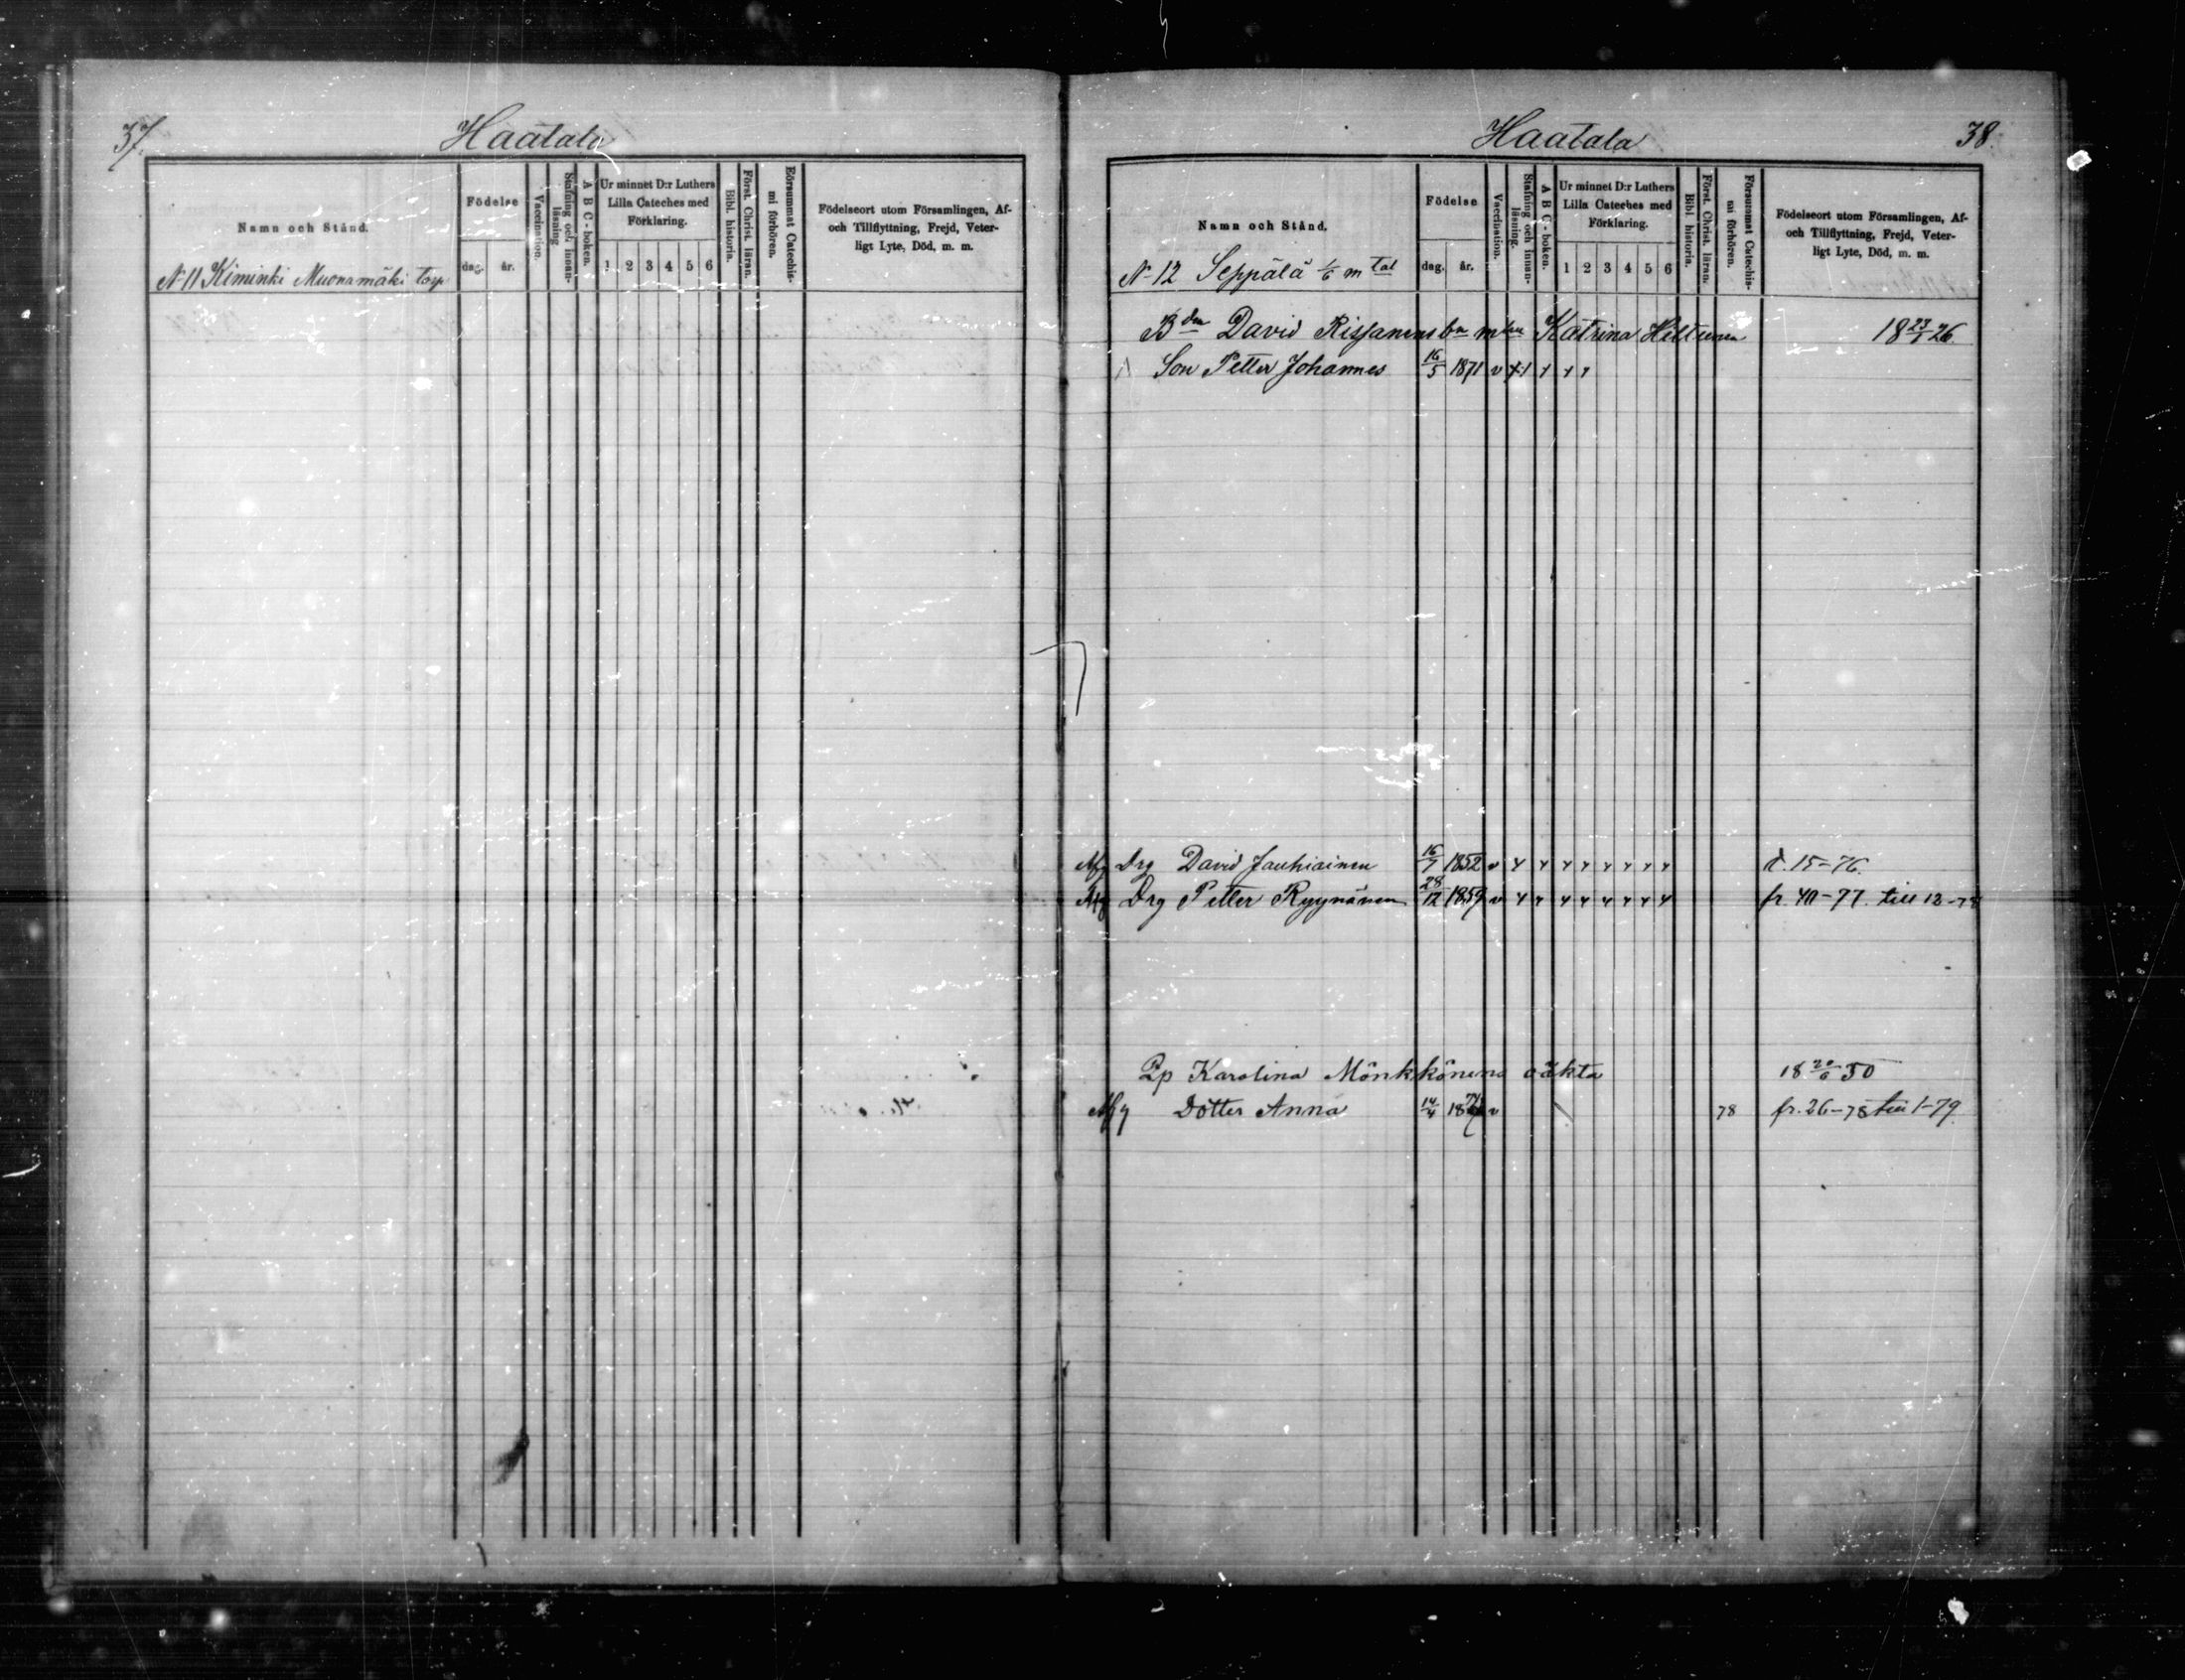 37.
Haatala
Namn och Stånd.
Födelse
dag.
år.
Vaccination.
Stafning och Innan-
läsning
A B C - boken.
Ur minnet D:r Luthers
Lilla Cateches med
Förklaring.
1 2 3 4 5 6
Bibl. historia.
Först. Christ. läran.
Försummat Catechis-
mi förhören.
Födelseort utom Församlingen, Af-
och Tillflyttning, Frejd, Veter-
ligt Lyte, Död, m. m.
N 11 Kiminki Muonamäki torp
Haatala
38.
Namn och Stånd.
Födelse
dag.
år.
Vaccination.
Stafning och Innan-
läsning.
A B C - boken.
Ur minnet D:r Luthers
Lilla Cateches med
Förklaring.
1 2 3 4 5 6
Bibl. historia.
Först. Christ. läran.
Försummat Catechis-
mi förhören.
Födelseort utom Församlingen, Af-
och Tillflyttning, Frejd, Veter-
ligt Lyte, Död, m. m.
N 12 Seppälä 1/6 m tal
Bden David Rissanens bn m Katrina Hiltunen 18 23/1 26.
Son Petter Johannes 16/5 1871 v
Drg David Jauhiainen 16/7 1852 v t. 15-76.
Drg Petter Ryynänen 28/12 1859 v fr. 40-77. till 12-78
Pp Karolina Mönkkönens oäkta 18 20/6 50
Afg Dotter Anna 14/4 1874 v 78 fr. 26-78 till 1-79.